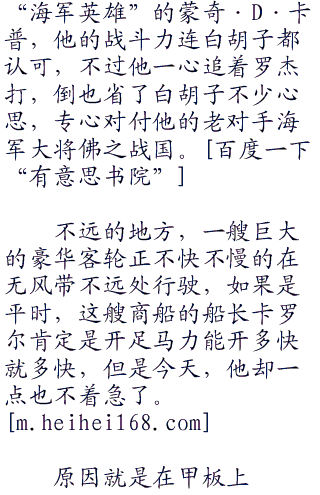 “海军英雄”的蒙奇·D·卡
普，他的战斗力连白胡子都
认可，不过他一心追着罗杰
打，倒也省了白胡子不少心
思，专心对付他的老对手海
军大将佛之战国。[百度一下
“有意思书院”]
不远的地方，一艘巨大
的豪华客轮正不快不慢的在
无风带不远处行驶，如果是
平时，这艘商船的船长卡罗
尔肯定是开足马力能开多快
就多快，但是今天，他却一
点也不着急了。
[m.heihei168.com]
原因就是在甲板上